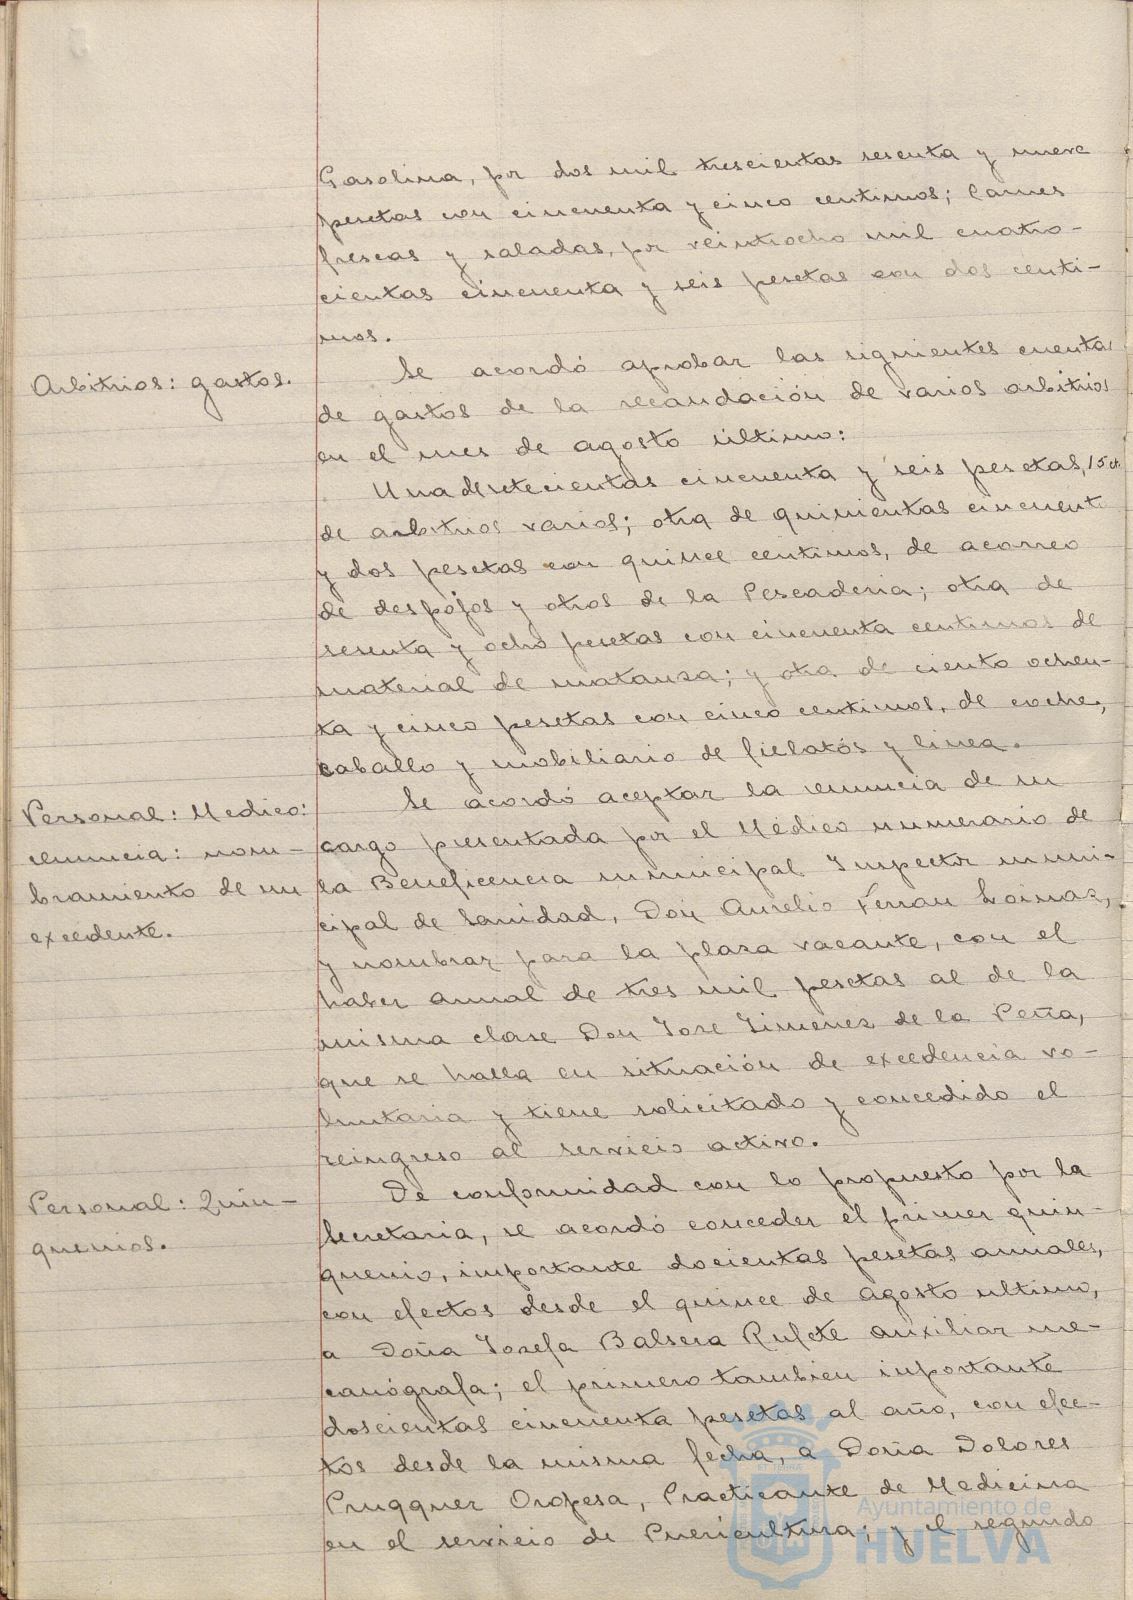 Gasolina, por dos mil trescientas sesenta y nueve
pesetas con cincuenta y cinco centimos; Carnes
frescas y saladas, por veintiocho mil cuatro-
cientas cincuenta y seis pesetas con dos centi-
mos.
Arbitrios: gastos.
Se acordó aprobar las siguientes cuentas
de gastos de la recaudación de varios arbitrios
en el mes de agosto último:
Una de setecientas cincuenta y seis pesetas, 15 ct.
de arbitrios varios; otra de quinientas cincuenta
y dos pesetas con quince centimos, de acarreo
de despojos y otros de la Pescaderia; otra de
sesenta y ocho pesetas con cincuenta centimos de
material de matanza; y otra de ciento ochen-
ta y cinco pesetas con cinco centimos, de coche,
caballo y mobiliario de fielatos y linea.
Personal: Medico:
renuncia: nom-
bramiento de un
excedente.
Se acordó aceptar la renuncia de su
cargo presentada por el Médico numerario de
la Beneficencia municipal Inspector muni-
cipal de Sanidad, Don Aurelio Ferran Loinaz,
y nombrar para la plaza vacante, con el
haber anual de tres mil pesetas al de la
misma clase Don Jose Jimenez de la Peña,
que se halla en situación de excedencia vo-
luntaria y tiene solicitado y concedido el
reingreso al servicio activo.
Personal: Quin-
quenios.
De conformidad con lo propuesto por la
Secretaria, se acordó conceder el primer quin-
quenio, importante docientas pesetas anuales,
con efectos desde el quince de agosto ultimo,
a Doña Josefa Balsera Rufete auxiliar me-
canógrafa; el primero tambien importante
doscientas cincuenta pesetas al año, con efec-
tos desde la misma fecha, a Doña Dolores
Pruqquer Oropesa, Practicante de Medicina
en el servicio de Puericultura; y el segundo
Ayuntamiento de
HUELVA